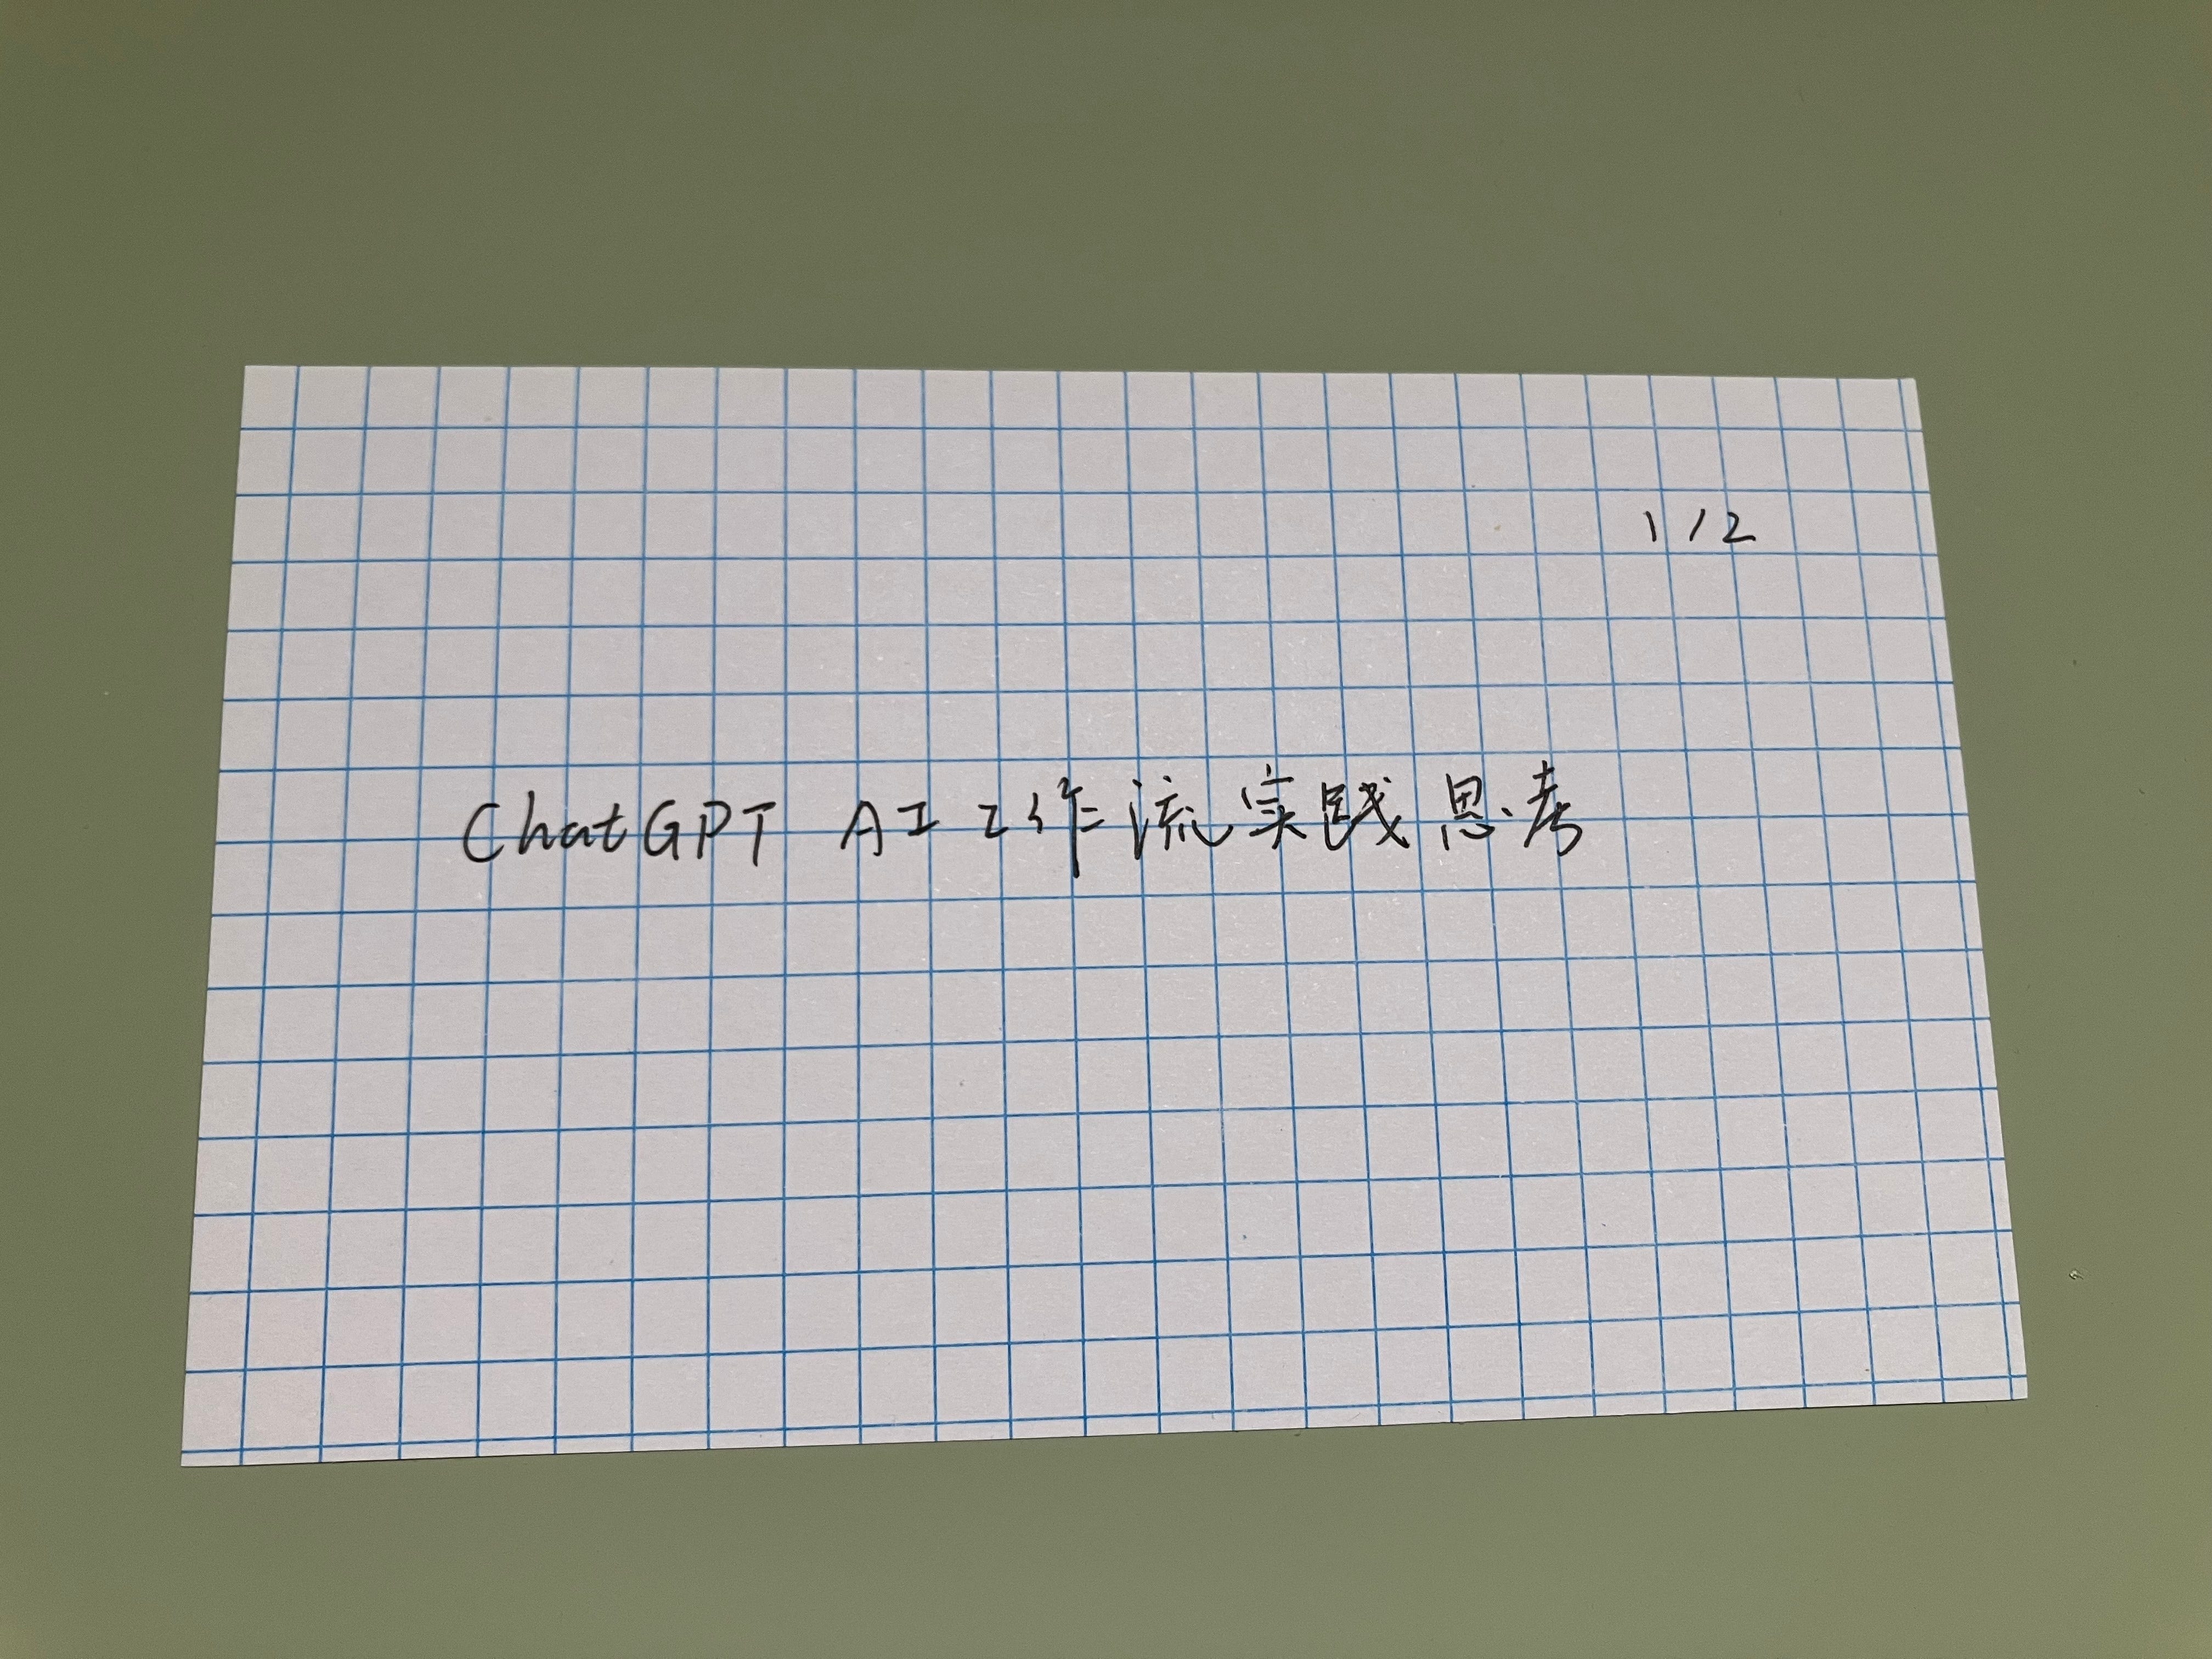 1/2
ChatGPT AI 工作流实践思考